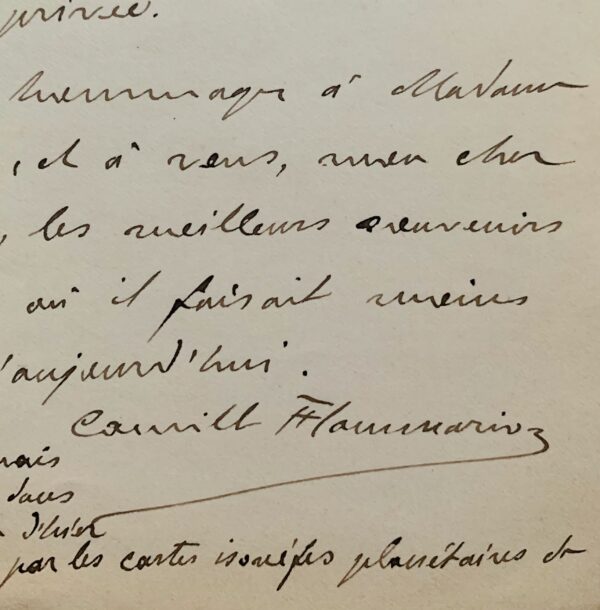 privée.
hommages à Madame
, et à vous, mon cher
, les meilleurs souvenirs
où il faisait moins
'aujourd'hui.
Camille Flammarion
mais
dans
d'hier
par les cartes isonèfes planétaires et